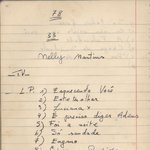 78
38
Nelly Martins
L.P. 1) Esquecendo Você
2) Este olhar
3) Luciana
4) É preciso dizer Adeus
5) Foi a noite
6) Só saudade
7) Engano